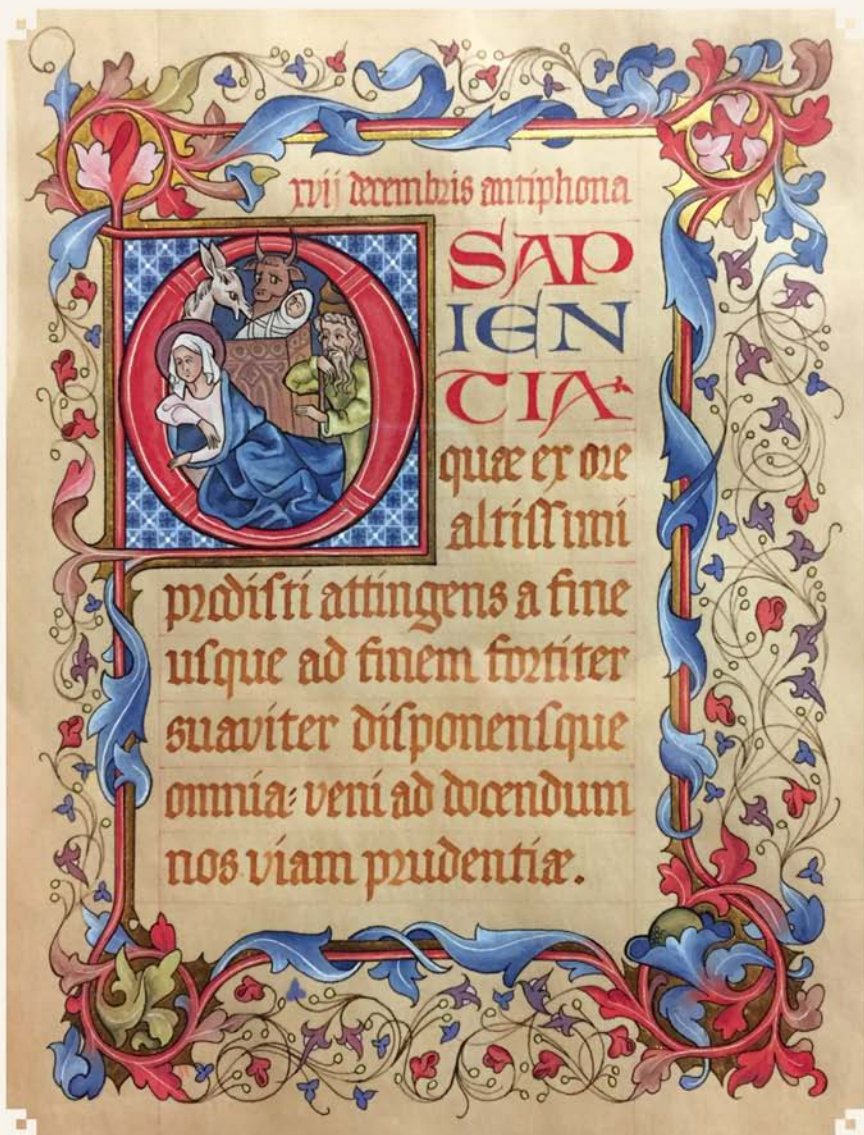 xvij decembris antiphona
O SAP
IEN
TIA
quæ ex ore
altiſſimi
prodiſti attingens a fine
uſque ad finem fortiter
suaviter diſponenſque
omnia: veni ad docendum
nos viam prudentiæ.